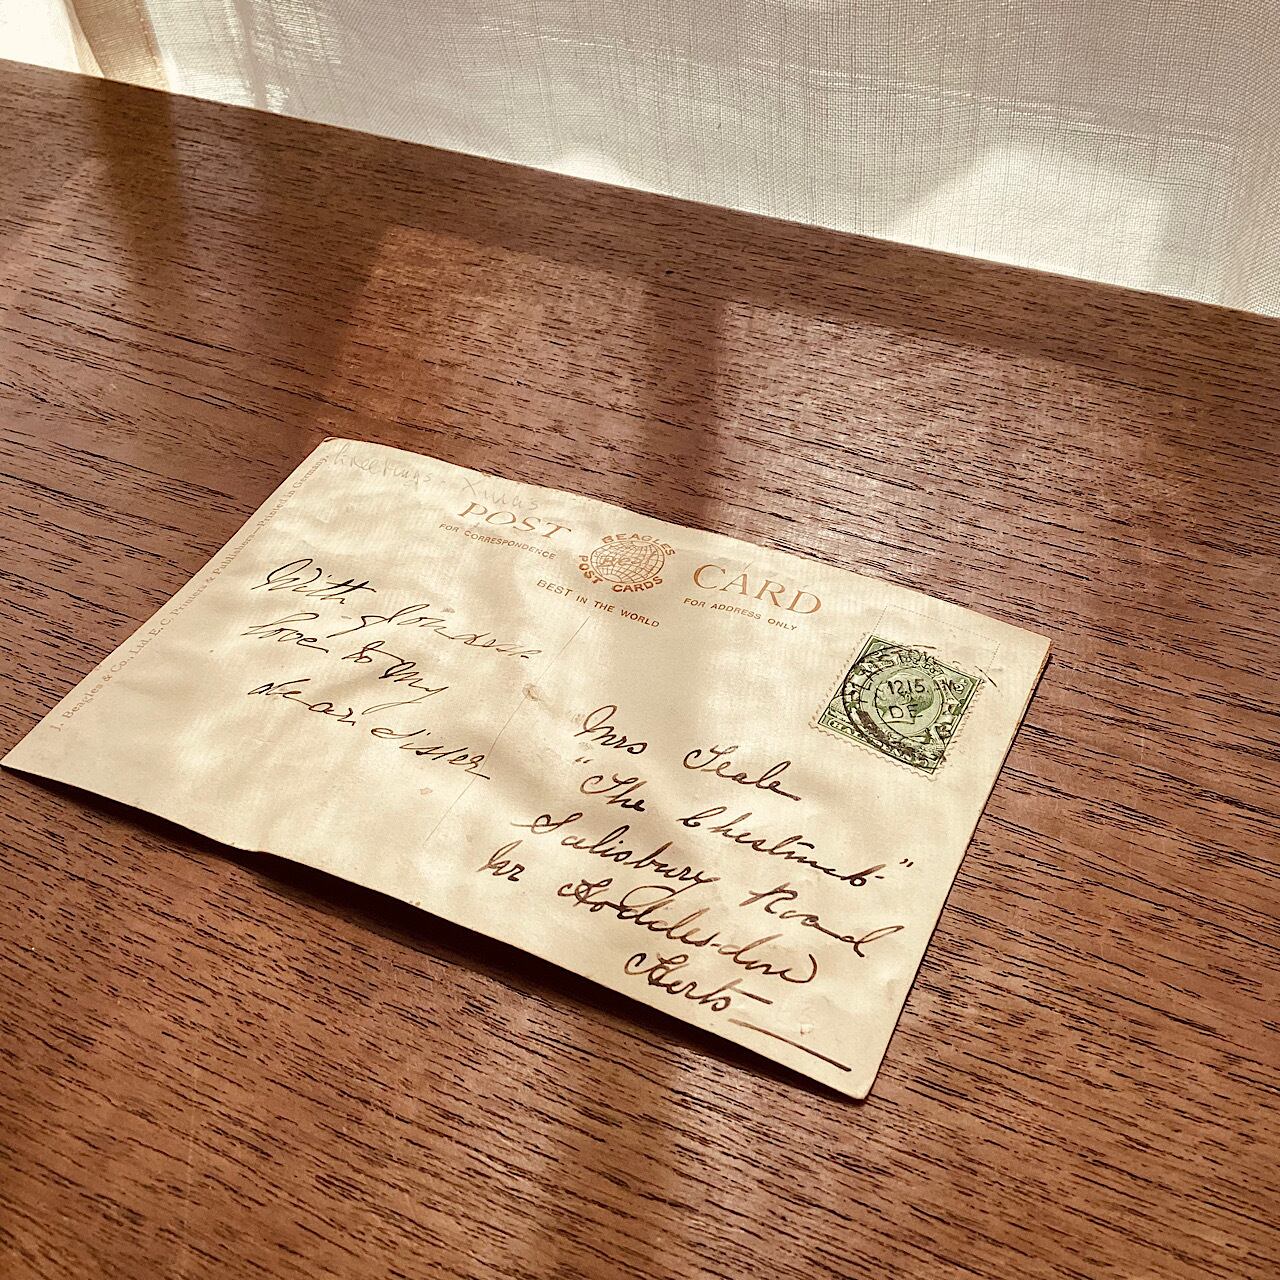 Greetings. Xmas
POST CARD
BEAGLES
POST CARDS
FOR CORRESPONDENCE
BEST IN THE WORLD
FOR ADDRESS ONLY
J. Beagles & Co., Ltd. E. C. Printers & Publishers. Printed in Germany.
With fondest
love to my
dear sister
Mrs Seale
"The Chestnuts"
Salisbury Road
Nr Hoddesdon
Herts
12.15 PM
DE